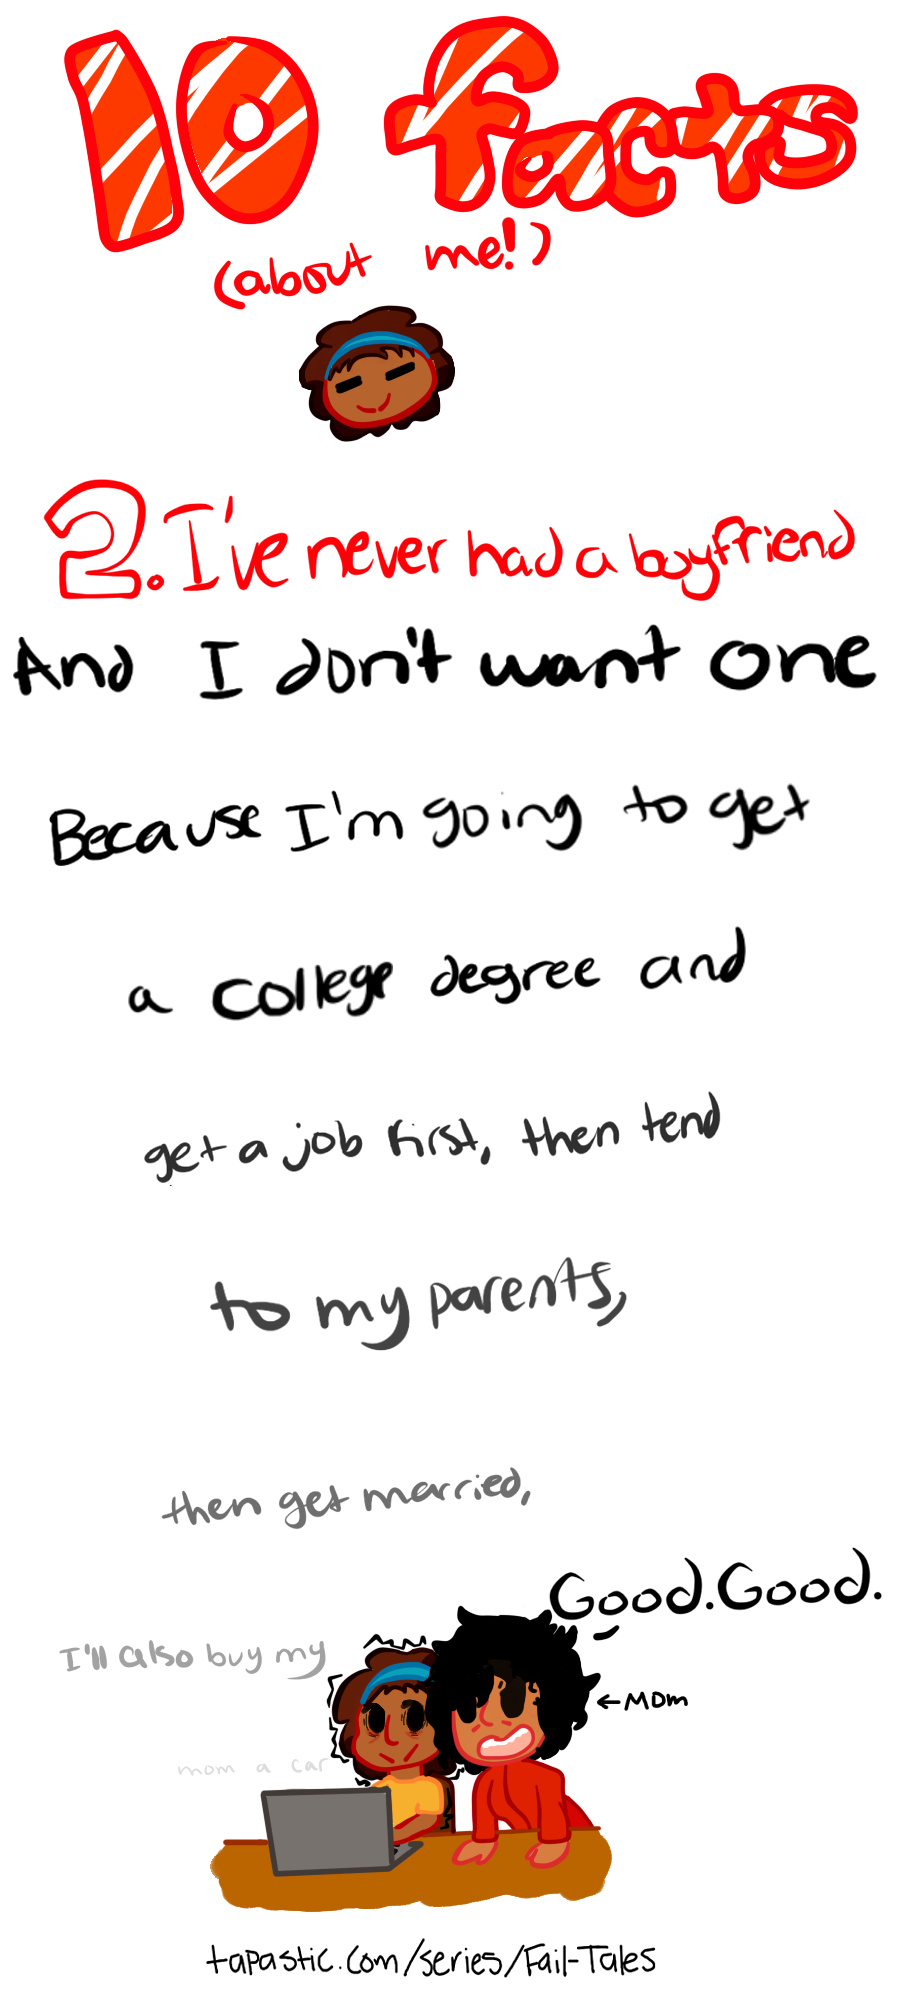 10 facts
(about me!)
2. I've never had a boyfriend
And I don't want one
Because I'm going to get
a college degree and
get a job first, then tend
to my parents,
then get married,
Good. Good.
I'll also buy my
←MOM
mom a car
tapastic.com/series/Fail-Tales